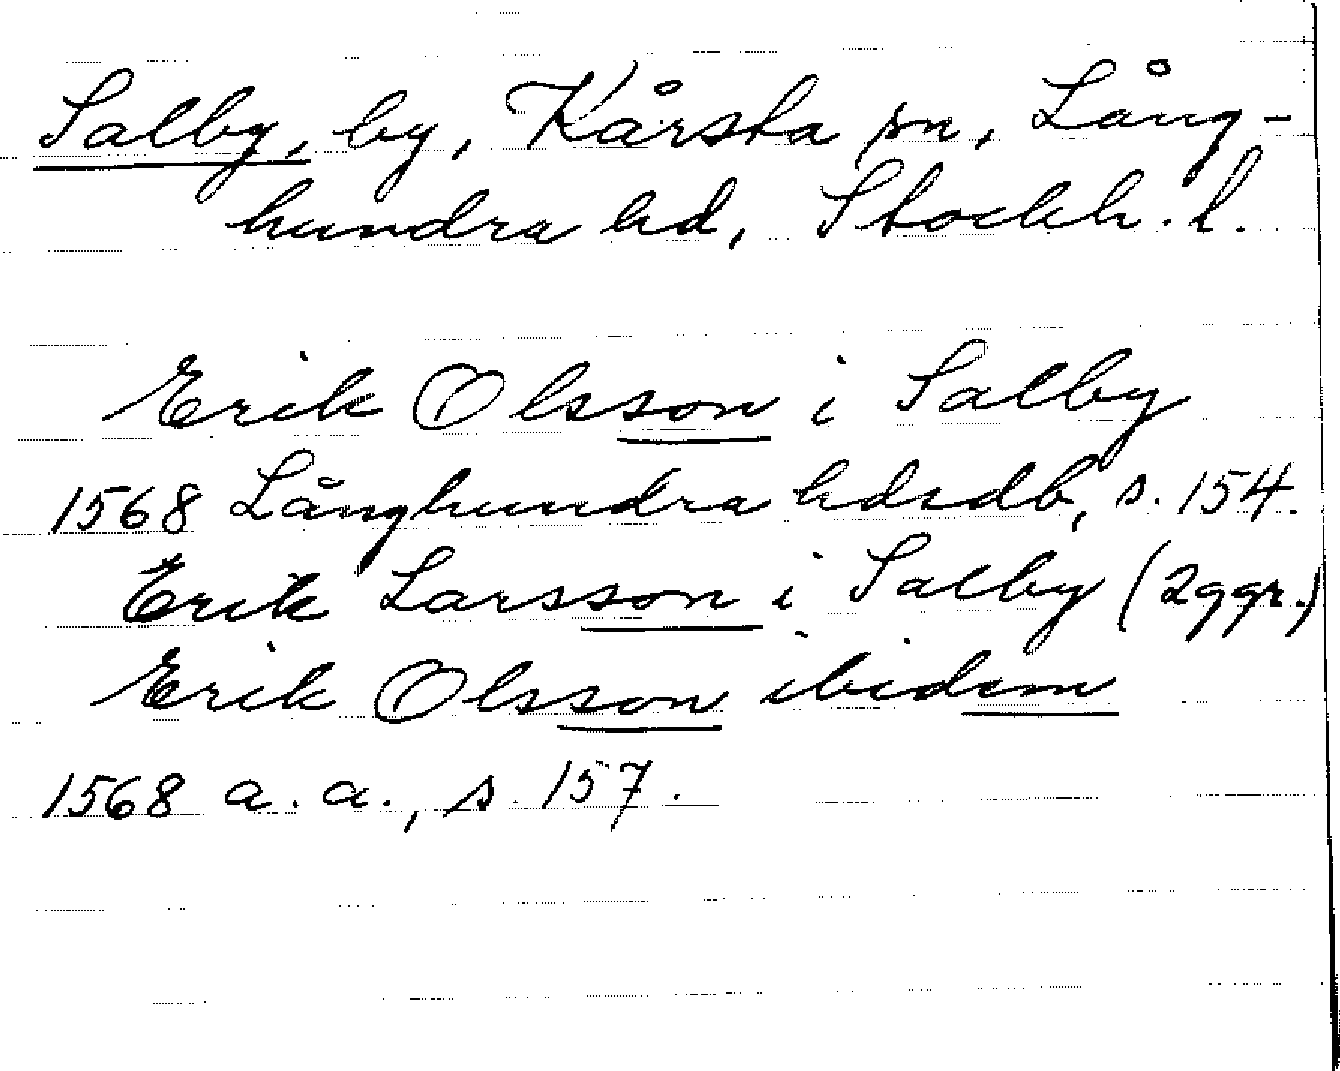 Salby, by, Kårsta sn, Lång-
hundra hd, Stockh. l.
Erik Olsson i Salby
1568 Långhundra hdsdb, s. 154.
Erik Larsson i Salby (2ggr.)
Erik Olsson ibidem
1568 a. a., s. 157.